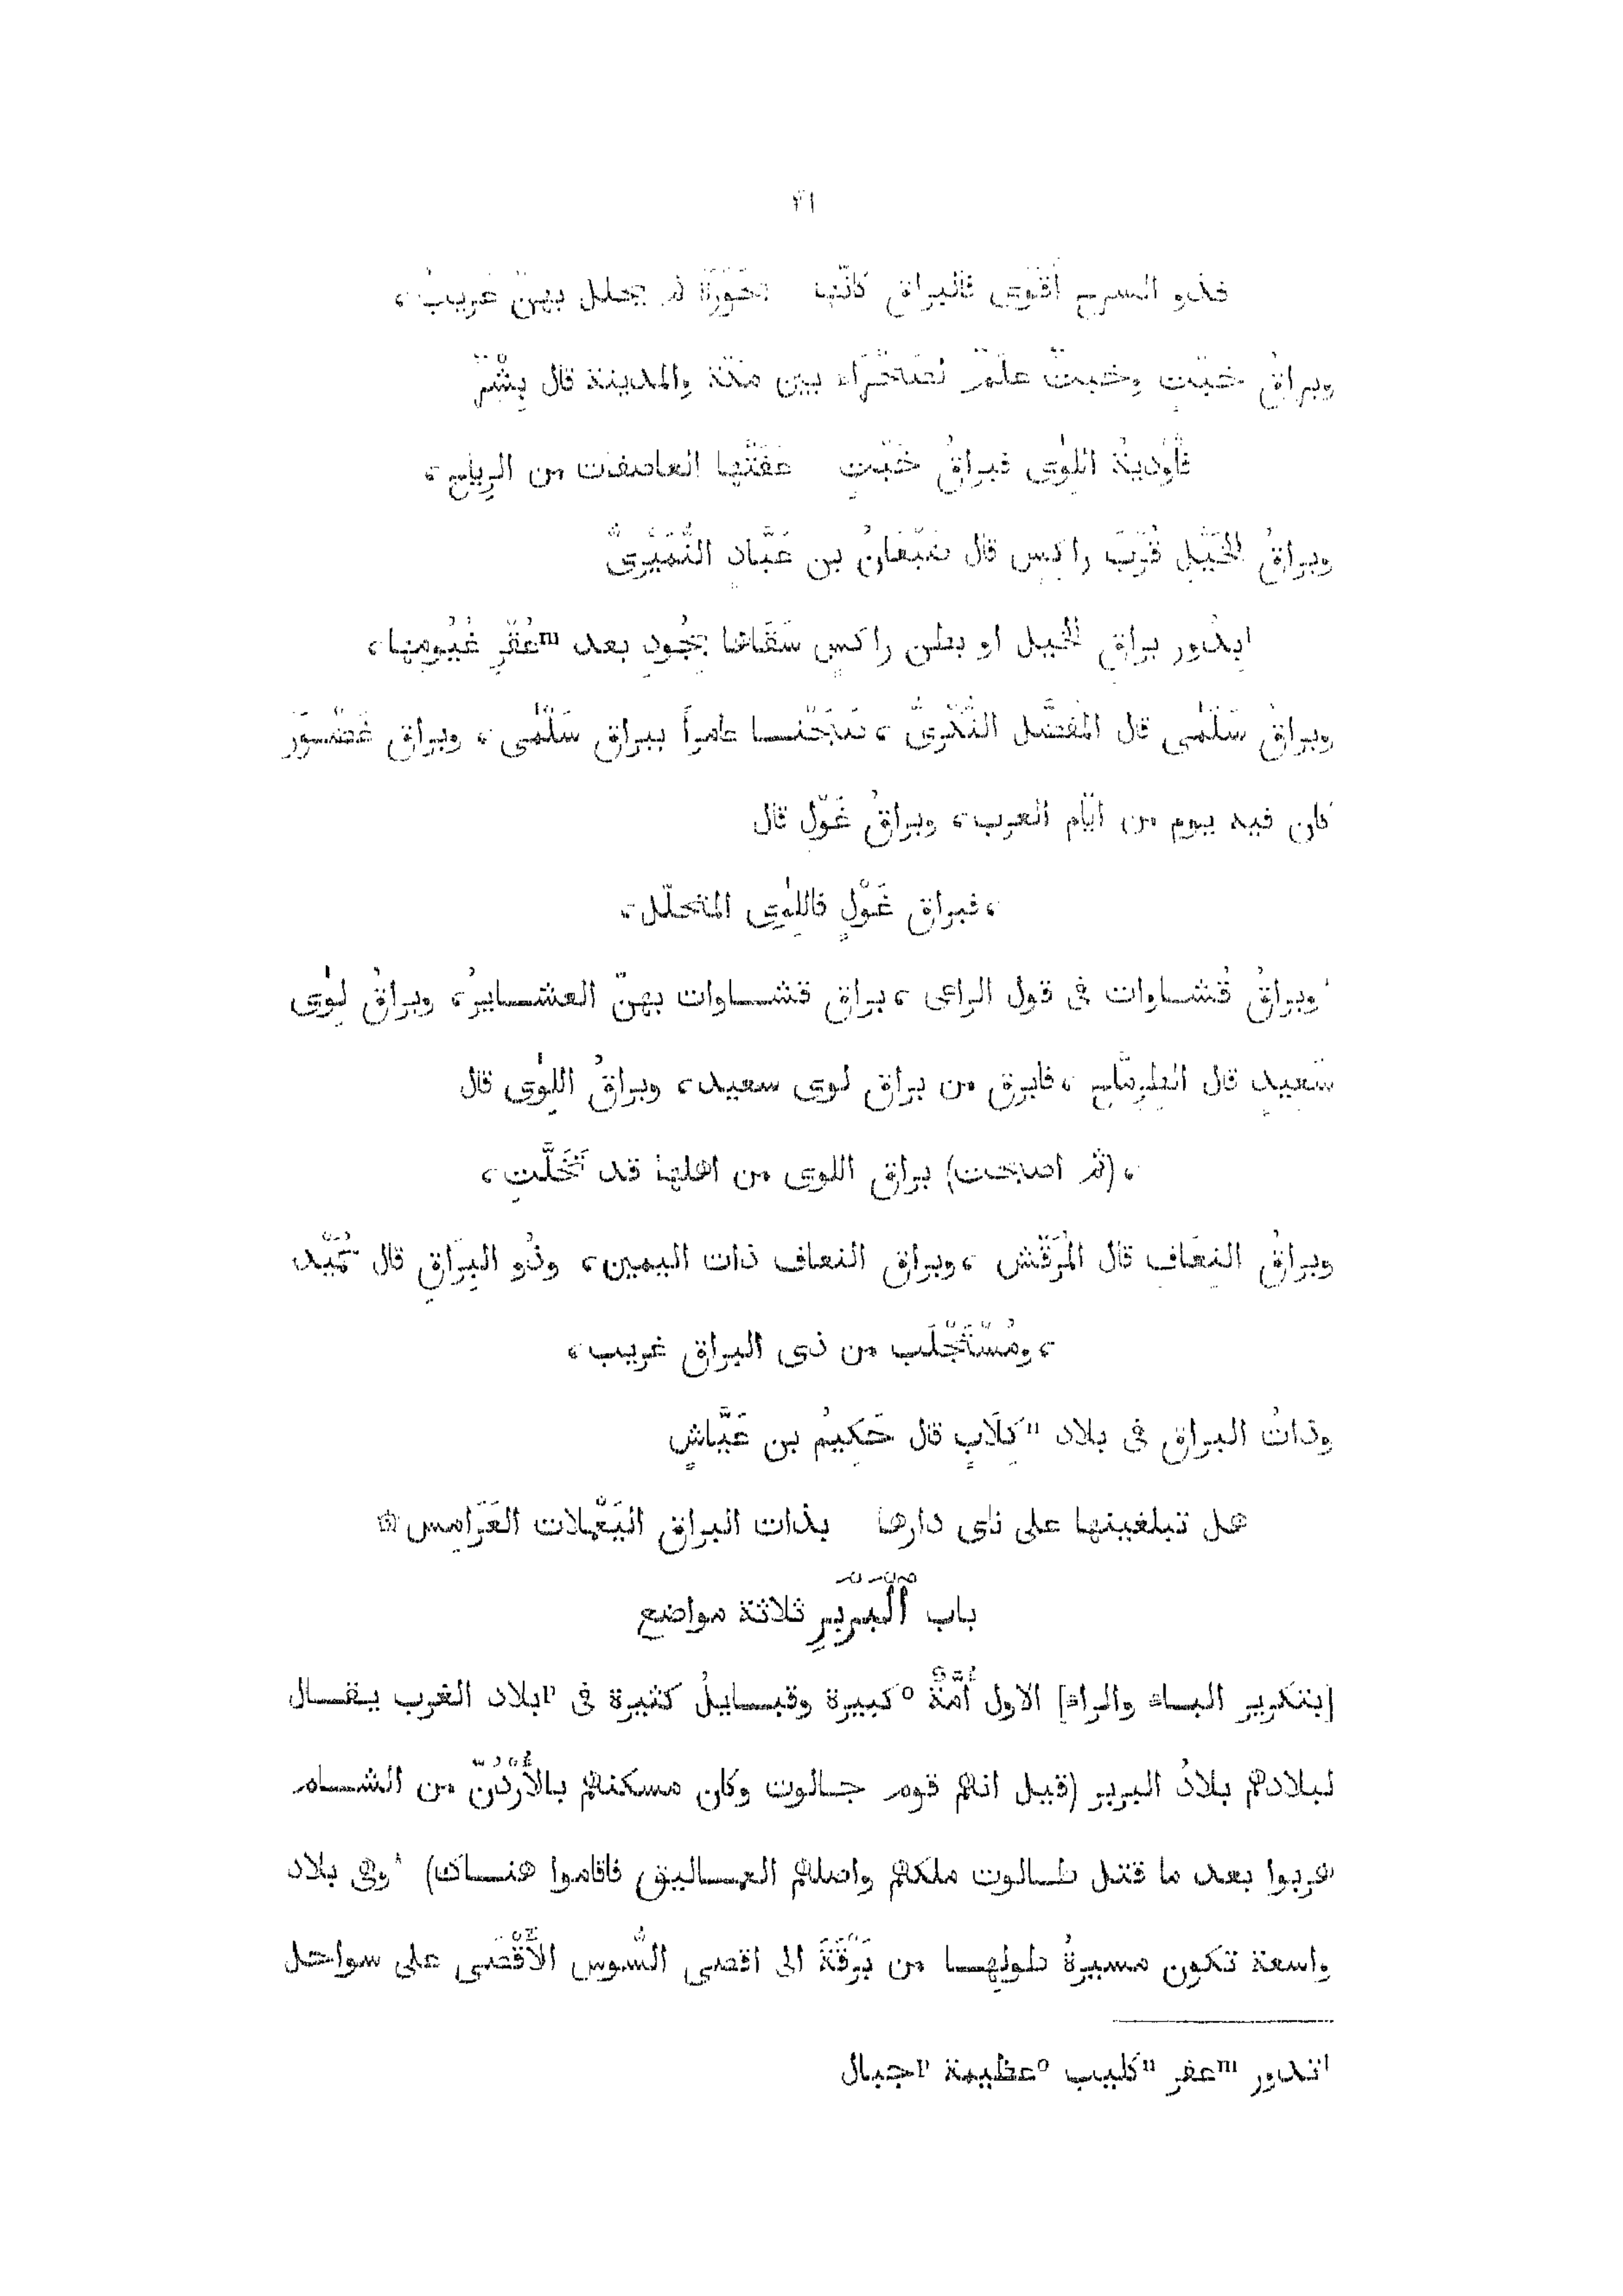 ٤١
فذو السرح أقوى فالبراق كانّها بحَوْرَةَ لم يحلل بهنّ عَرِيبُ،
وبراقُ خَبْتٍ وخبتُ علَمٌ لصَحْرَاء بين مكّة والمدينة قال بِشْرٌ
فأَوْدِيَةُ اللِوَى فبراقُ خَبْتٍ عَفَتْها العاصفات من الرياح،
وبراقُ الخَيْلِ قُرْبَ راكِس قال ضَبْعَانُ بن عَبَّادٍ النُّمَيْرِىُّ
lبِدُور براقِ الخيل او بطن راكسٍ سَقَاها بجُودٍ بعد mعُقْرٍ غُيُومِها،
وبراقُ سَلْمَى قال المُفَضَّل النُّكْرِىُّ، صَبَحْنا عامراً ببراق سَلْمَى، وبراق غَضْوَر
كان فيه يوم من ايّام العرب، وبراقُ غَوْلٍ قال
، فبراق غَوْلٍ فاللِوَى المتحلّل،
وبراقُ قُشاوات فى قول الراعى، براق قشاوات بهنّ العشايرُ، وبراقُ لِوَى
سَعِيدٍ قال الطِرِمَّاح، فابرق من براق لوى سعيد، وبراقُ اللِوَى قال
، (ثم اصبحت) براق اللوى من اهلها قد تَخَلَّتِ،
وبراقُ النِعَاف قال المُرَقِّش، وبراق النعاف ذات اليمين، وذُو البِرَاقِ قال حُمَيْد
، ومُسْتَجْلَب من ذى البراق غريب،
وذاتُ البراق فى بلاد nكِلَابٍ قال حَكِيمُ بن عَيَّاشٍ
هل تبلغينها على نأى دارها بذات البراق اليَعْمَلات العَرَامِس ۞
باب ٱلْبَرْبَرِ ثلاثة مواضع
[بتكرير الباء والراء] الاول أُمَّةٌ oكبيرة وقبايلُ كثيرة فى pبلاد الغرب يقال
لبلادهم بلادُ البربر (قيل انهم قوم جالوت وكان مسكنهم بالأُرْدُنّ من الشام
هربوا بعد ما قتل طالوت ملكهم واصلهم العماليق فاقاموا هناك) وهى بلاد
واسعة تكون مسيرةُ طولِها من بَرْقَةَ الى اقصى السُّوس الأَقْصَى على سواحل
lتدور mعفر nكليب oعظيمة pجبال